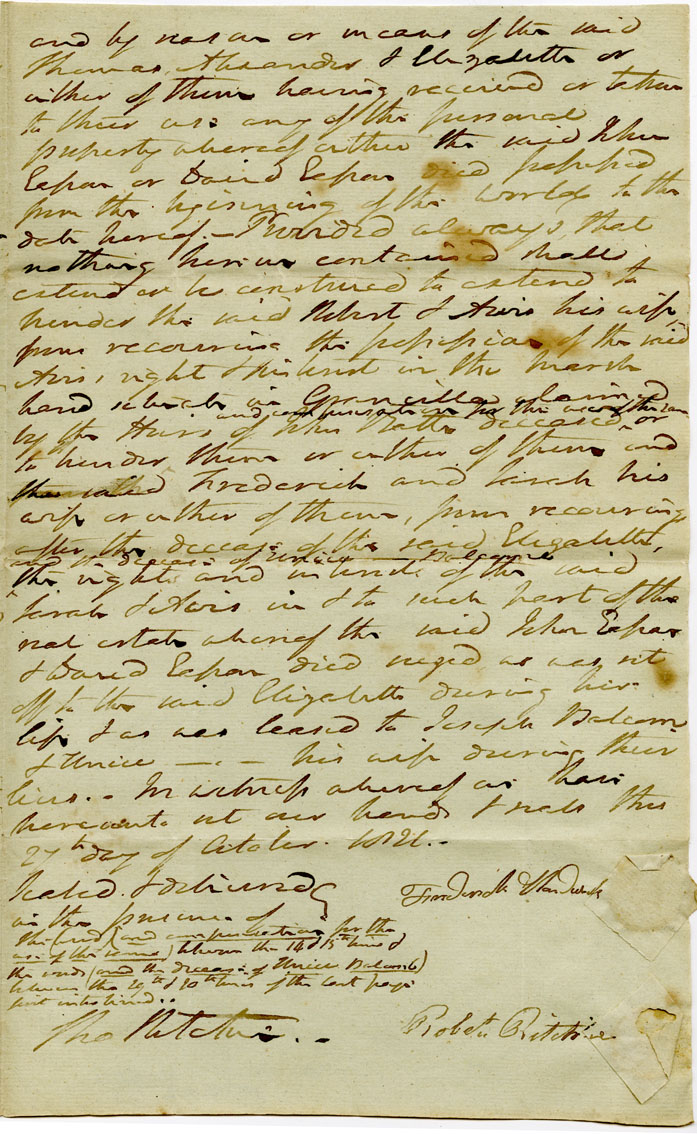 and by reason or means of the said
Thomas, Alexander & Elizabeth or
either of them having received or taken
to their use any of the personal
property whereof either the said John
Easson or David Easson died possessed
from the beginning of the world to the
date hereof.— Provided always, that
nothing herein contained shall
extend or be construed to extend to
hinder the said Robert & Avis his wife
from recovering the possession of the said
Avis, right & interest in the marsh
land situate in Granville claimed
and compensation for the use of the same
by the Heirs of John Hall deceased, or
to hinder them or either of them and
the said Frederick and Sarah his
wife or either of them, from recovering
after the decease of the said Elizabeth,
and the decease of Unice Balcomb
the rights and interest of the said
Sarah & Avis in & to such part of the
real estate whereof the said John Easson
& David Easson died seized as was set
off to the said Elizabeth during her
life & as was leased to Joseph Balcom
& Unice —.— his wife during their
lives.— In witness whereof we have
hereunto set our hands & seals this
27th day of October. 1821.—
Sealed & delivered
in the presence of
the words (and compensation for the
use of the same) between the 14 & 15th lines &
the words (and the decease of Unice Balcomb)
between the 19th & 20th lines of the last page
first interlined..
Tho Ritchie..
Frederick
Robert Ritchie